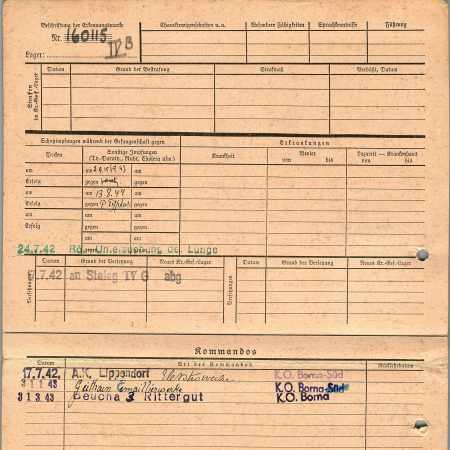 Beschriftung der Erkennungsmarke
Nr. 160115
IV B
Lager:
Charaktereigenschaften u.a.
Besondere Fähigkeiten
Sprachkenntnisse
Führung
Strafen im Kr.-Gef.-Lager
Datum
Grund der Bestrafung
Strafmaß
Verbüßt, Datum
Schutzimpfungen während der Gefangenschaft gegen
Erkrankungen
Pocken
Sonstige Impfungen
(Ty.-Paraty., Ruhr, Cholera usw.)
Krankheit
Revier
von bis
Lazarett — Krankenhaus
von bis
am am am
Erfolg gegen gegen
am am 13.9.44 am
Erfolg gegen P. Typhus gegen
am am am
Erfolg gegen gegen
am am am
24.7.42 Rö. Untersuchung der Lunge
Versetzungen
Datum
Grund der Versetzung
Neues Kr.-Gef.-Lager
Datum
Grund der Versetzung
Neues Kr.-Gef.-Lager
Versetzungen
7.7.42 an Stalag IV G abg
Kommandos
Datum
Art des Kommandos
Rückkehrdatum
17.7.42. A.K. Lippendorf K.O. Borna-Süd
31 1 43 Geithain Emaillierwerke K.O. Borna-Süd
31 3 43 Beucha 3 Rittergut K.O. Borna